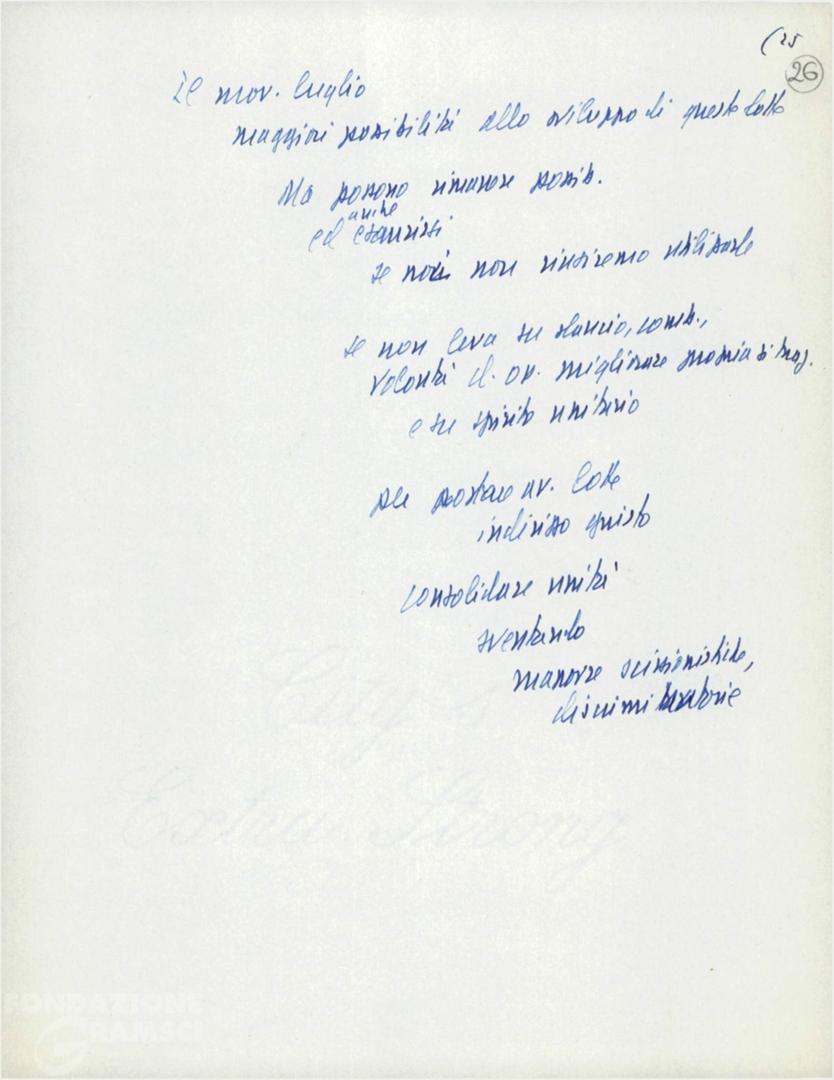 (25
26
Il mov. luglio
maggiori possibilità allo sviluppo di queste lotte
Ma possono rimanere possib.
anche
ed esaurirsi
se noi non riusciremo utilizzarle
se non leva su slancio, comb.,
volontà d. op. migliorare propria
e su spirito unitario
per portare av. lotte
indirizzo giusto
consolidare unità
sventando
manovre scissionistiche,
discriminatorie
Extra Strong
FONDAZIONE
GRAMSCI